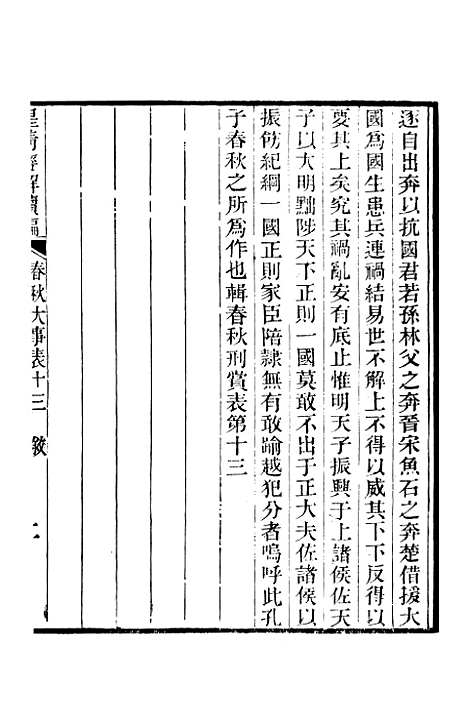 逐自出奔以抗國君若孫林父之奔晉宋魚石之奔楚借援大
國爲國生患兵連禍結易世不解上不得以威其下下反得以
要其上矣究其禍亂安有底止惟明天子振興于上諸侯佐天
子以大明黜陟天下正則一國莫敢不出于正大夫佐諸侯以
振飭紀綱一國正則家臣陪隷無有敢踰越犯分者嗚呼此孔
子春秋之所爲作也輯春秋刑賞表第十三
皇淸經解續編
春秋大事表十三 敘
二